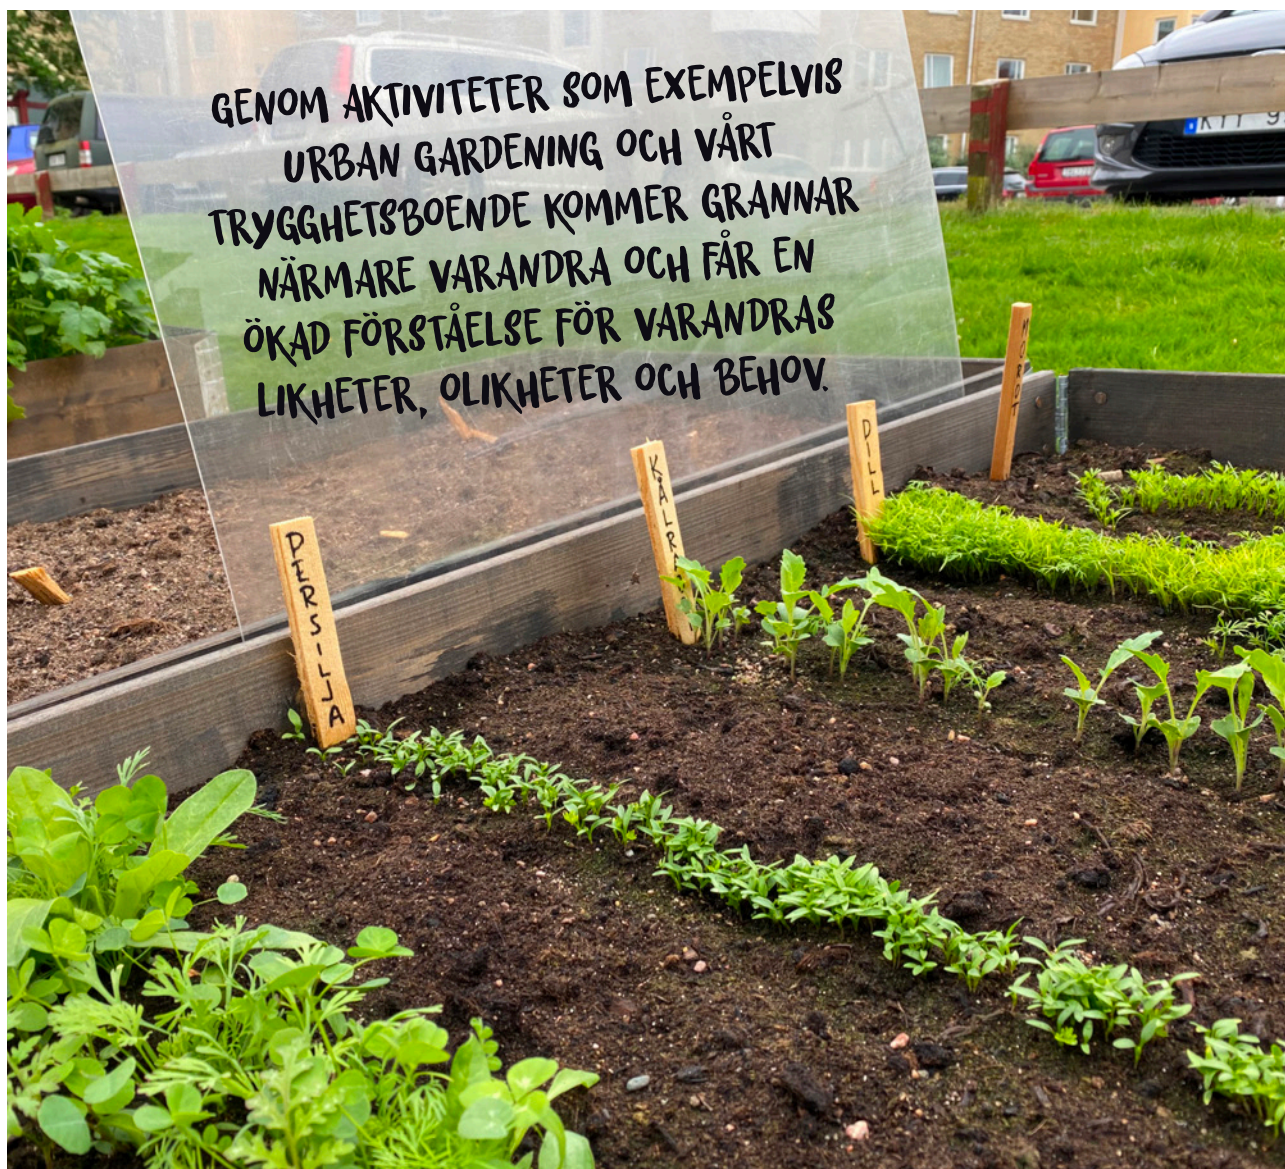 GENOM AKTIVITETER SOM EXEMPELVIS
URBAN GARDENING OCH VÅRT
TRYGGHETSBOENDE KOMMER GRANNAR
NÄRMARE VARANDRA OCH FÅR EN
ÖKAD FÖRSTÅELSE FÖR VARANDRAS
LIKHETER, OLIKHETER OCH BEHOV.
PERSILJA
DILL